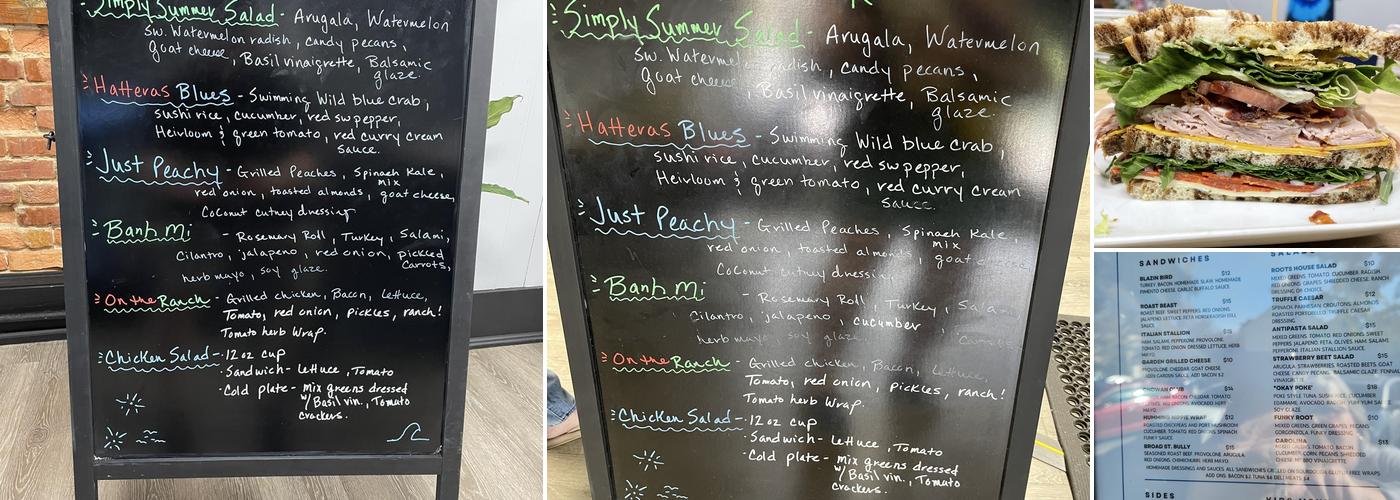 Simply Summer Salad - Arugala, Watermelon
Sw. Watermelon radish, candy pecans,
goat cheese, Basil vinaigrette, Balsamic
glaze.
Hatteras Blues - Swimming Wild blue crab,
sushi rice, cucumber, red sw pepper,
Heirloom & green tomato, red curry cream
sauce.
Just Peachy - Grilled Peaches, Spinach Kale,
mix
red onion, toasted almonds, goat cheese,
Coconut cutney dressing
Banh Mi - Rosemary Roll, Turkey, Salami,
Cilantro, jalapeno, red onion, pickled
Carrots,
herb mayo, soy glaze.
On the Ranch - Grilled chicken, Bacon, Lettuce,
Tomato, red onion, pickles, ranch!
Tomato herb Wrap.
Chicken Salad - · 12 oz cup
· Sandwich - Lettuce, Tomato
· Cold plate - mix greens dressed
w/ Basil vin., Tomato
crackers.
Simply Summer Salad - Arugala, Watermelon
Sw. Watermelon radish, candy pecans,
goat cheese, Basil vinaigrette, Balsamic
glaze.
Hatteras Blues - Swimming Wild blue crab,
sushi rice, cucumber, red sw pepper,
Heirloom & green tomato, red curry cream
sauce.
Just Peachy - Grilled Peaches, Spinach Kale,
mix
red onion, toasted almonds, goat
Coconut cutney dressing
Banh Mi - Rosemary Roll, Turkey,
Cilantro, jalapeno, cucumber
herb mayo, soy glaze.
On the Ranch - Grilled chicken, Bacon, Lettuce,
Tomato, red onion, pickles, ranch!
Tomato herb Wrap.
Chicken Salad - · 12 oz cup
· Sandwich - Lettuce, Tomato
· Cold plate - mix greens dressed
w/ Basil vin., Tomato
crackers.
SANDWICHES
BLAZIN BIRD $12
TURKEY, BACON, HOMEMADE SLAW, HOMEMADE
PIMENTO CHEESE, GARLIC BUFFALO SAUCE.
ROAST BEEF $15
ROAST BEEF, SWEET PEPPERS, RED ONIONS,
JALAPENO, LETTUCE, FETA, HORSERADISH DILL
SAUCE
ITALIAN STALLION $15
HAM, SALAMI, PEPPERONI, PROVOLONE,
TOMATO, RED ONION, DRESSED LETTUCE, HERB
MAYO.
GARDEN GRILLED CHEESE $10
PROVOLONE, CHEDDAR, GOAT CHEESE,
ADD BACON $2
CLUB $14
BACON, CHEDDAR, TOMATO,
RED ONIONS, AVOCADO, HERB
MAYO
HUMMING HIPPIE WRAP $12
ROASTED CHICKPEAS AND PORT MUSHROOM
CUCUMBER, TOMATO, RED ONIONS, SPINACH
FUNKY SAUCE
BROAD ST. BULLY $15
SEASONED ROAST BEEF, PROVOLONE, ARUGULA,
RED ONIONS, CHIMICHURRI, HERB MAYO.
ROOTS HOUSE SALAD $10
MIXED GREENS, TOMATO, CUCUMBER, RADISH,
RED ONIONS, GRAPES, SHREDDED CHEESE, RANCH
DRESSING OR CHOICE.
TRUFFLE CAESAR $12
SPINACH, PARMESAN, CROUTONS, ALMONDS,
ROASTED PORTOBELLO, TRUFFLE CAESAR
DRESSING.
ANTIPASTA SALAD $15
MIXED GREENS, TOMATO, RED ONIONS, SWEET
PEPPERS, JALAPENO, FETA, OLIVES, HAM, SALAMI,
PEPPERONI, ITALIAN STALLION SAUCE.
STRAWBERRY BEET SALAD $15
ARUGULA, STRAWBERRIES, ROASTED BEETS, GOAT
CHEESE, CANDY PECANS, BALSAMIC GLAZE,
VINAIGRETTE
"OKAY POKE' $18
POKE STYLE TUNA, SUSHI RICE, CUCUMBER,
EDAMAME, AVOCADO, RADISH, YUM YUM SAUCE,
SOY GLAZE.
FUNKY ROOT $10
MIXED GREENS, GREEN GRAPES, PECANS
GORGONZOLA, FUNKY DRESSING.
CAROLINA $13
MIXED GREENS, TOMATO, BACON,
CUCUMBER, CORN, PECANS, SHREDDED
CHEESE, BBQ VINAIGRETTE.
HOMEMADE DRESSINGS AND SAUCES. ALL SANDWICHES GRILLED ON SOURDOUGH. GLUTEN FREE WRAPS
ADD ONS: BACON $2 TUNA $8 DELI MEATS $4
SIDES